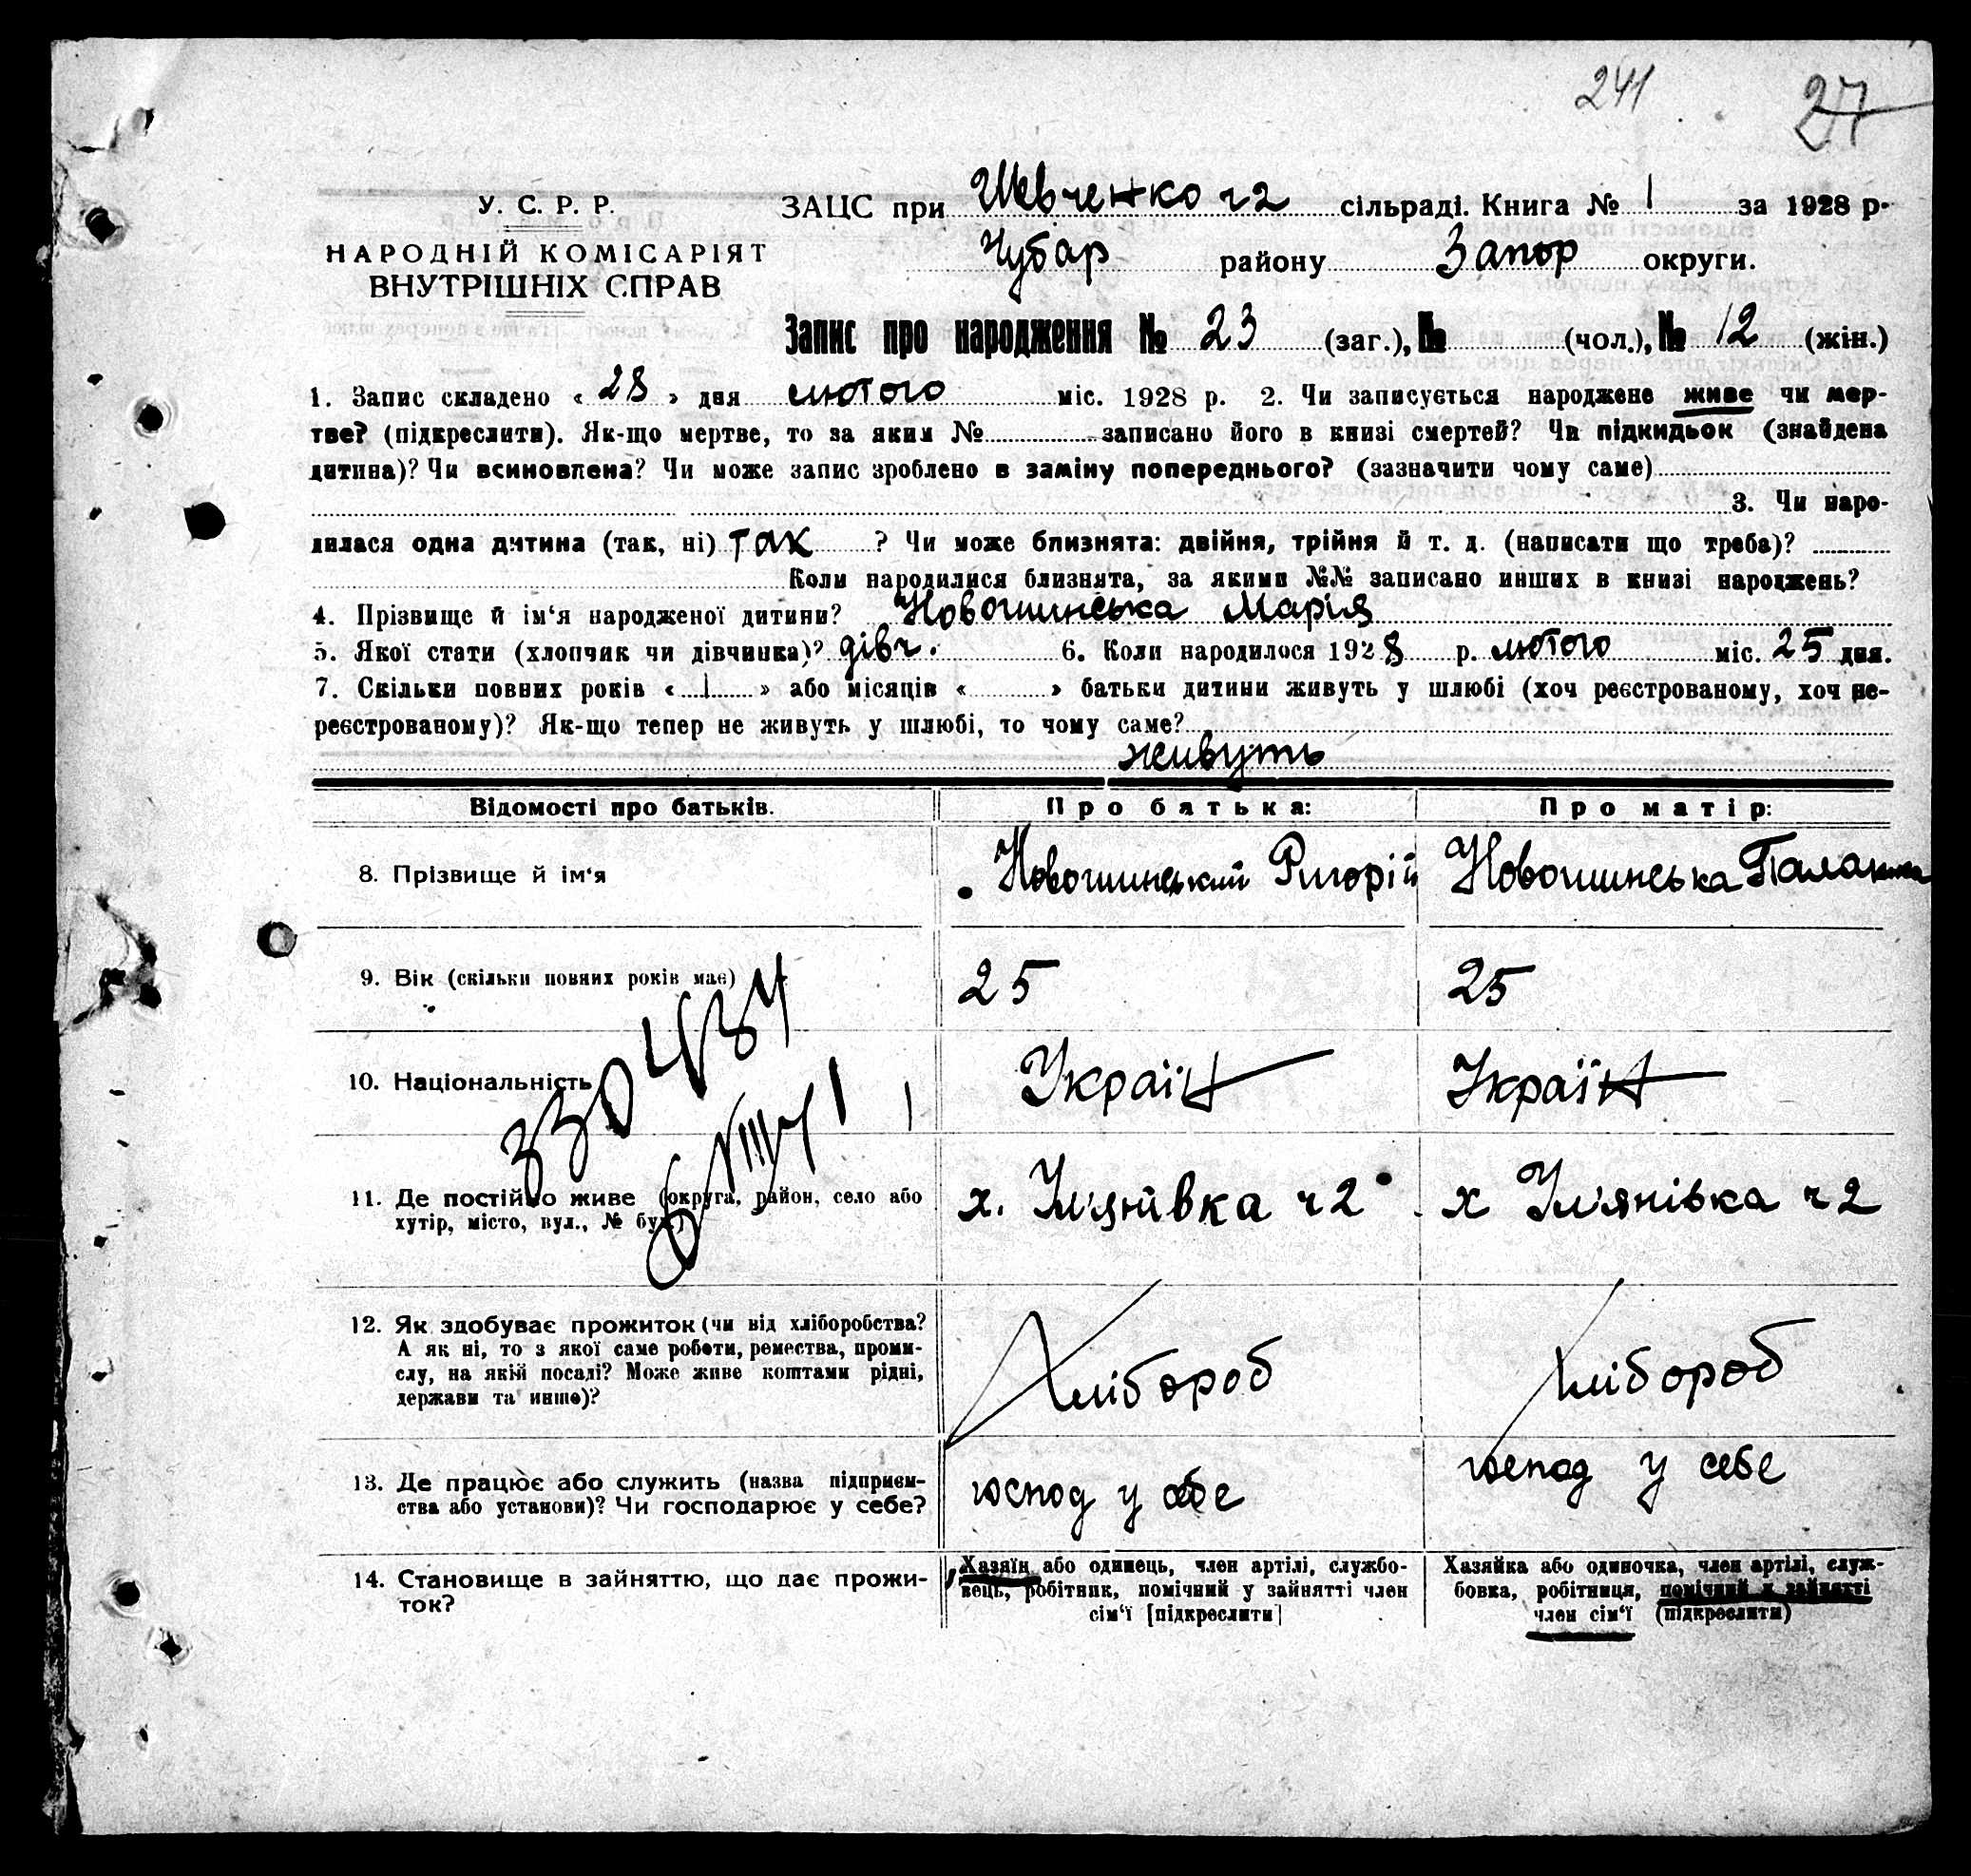 241 27
У. С. Р. Р.
НАРОДНІЙ КОМІСАРІЯТ
ВНУТРІШНІХ СПРАВ
ЗАЦС при Шевченко ч2 сільраді. Книга № 1 за 1928 р.
Чубар району Запор округи.
Запис про народження № 23 (заг.), № (чол.), № 12 (жін.)
1. Запис складено « 28 » дня лютого міс. 1928 р. 2. Чи записується народжене живе чи мер-
тве? (підкреслити). Як-що мертве, то за яким № записано його в книзі смертей? Чи підкидьок (знайдена
дитина)? Чи всиновлена? Чи може запис зроблено в заміну попереднього? (зазначити чому саме)
3. Чи наро-
дилася одна дитина (так, ні) так ? Чи може близнята: двійня, трійня й т. д. (написати що треба)?
Коли народилися близнята, за якими №№ записано инших в книзі народжень?
4. Прізвище й ім‘я народженої дитини? Новошинська Марія
5. Якої стати (хлопчик чи дівчинка)? дівч. 6. Коли народилося 1928 р. лютого міс. 25 дня.
7. Скільки повних років « 1 » або місяців « » батьки дитини живуть у шлюбі (хоч реєстрованому, хоч не-
реєстрованому)? Як-що тепер не живуть у шлюбі, то чому саме?
живуть
Відомості про батьків. Про батька: Про матір:
8. Прізвище й ім‘я Новошинський Григорій Новошинська
9. Вік (скільки повних років має) 25 25
10. Національність Україн Україн
11. Де постійно живе (округа, район, село або х. Ул'янівка ч2 х Ул'янівка ч2
хутір, місто, вул., № буд.)
12. Як здобуває прожиток (чи від хліборобства? Хлібороб Хлібороб
А як ні, то з якої саме роботи, ремества, проми-
слу, на якій посаді? Може живе коштами рідні,
держави та инше)?
13. Де працює або служить (назва підприєм- господ у себе господ у себе
ства або установи)? Чи господарює у себе?
14. Становище в зайняттю, що дає прожи-
ток?
Хазяїн або одинець, член артілі, службо-
вець, робітник, помічний у зайнятті член
сім‘ї [підкреслити]
Хазяйка або одиночка, член артілі, служ-
бовка, робітниця, помічний у зайнятті
член сім‘ї (підкреслити)